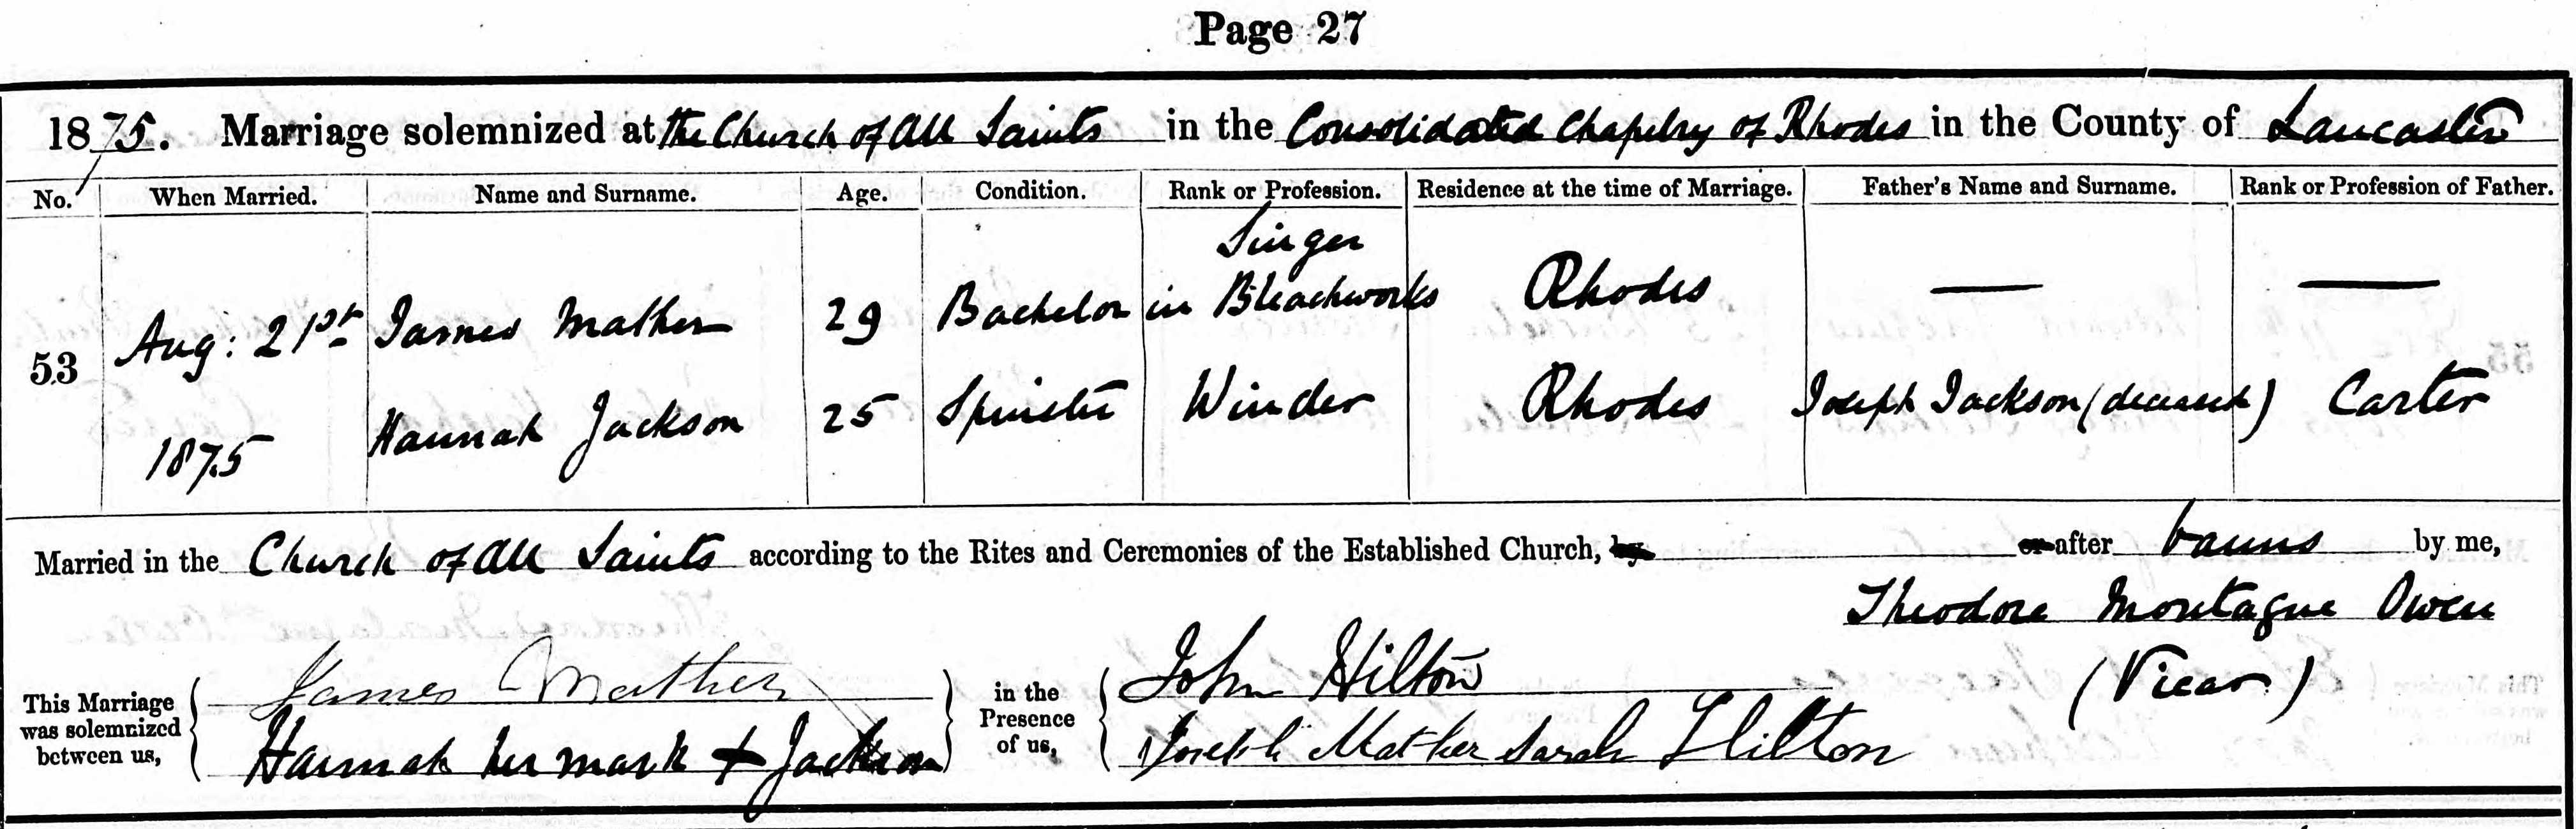 Page 27
1875. Marriage solemnized at the Church of All Saints in the Consolidated Chapelry of Rhodes in the County of Lancaster
No. When Married. Name and Surname. Age. Condition. Rank or Profession. Residence at the time of Marriage. Father's Name and Surname. Rank or Profession of Father.
53 Aug: 21st James Mather 29 Bachelor Singer in Bleachworks Rhodes — —
1875 Hannah Jackson 25 Spinster Winder Rhodes Joseph Jackson (deceased) Carter
Married in the Church of All Saints according to the Rites and Ceremonies of the Established Church, by or after banns by me,
Theodore Montague Owen
(Vicar)
This Marriage was solemnized between us,
James Mather
Hannah her mark + Jackson
in the Presence of us,
John Hilton
Joseph Mather Sarah Hilton